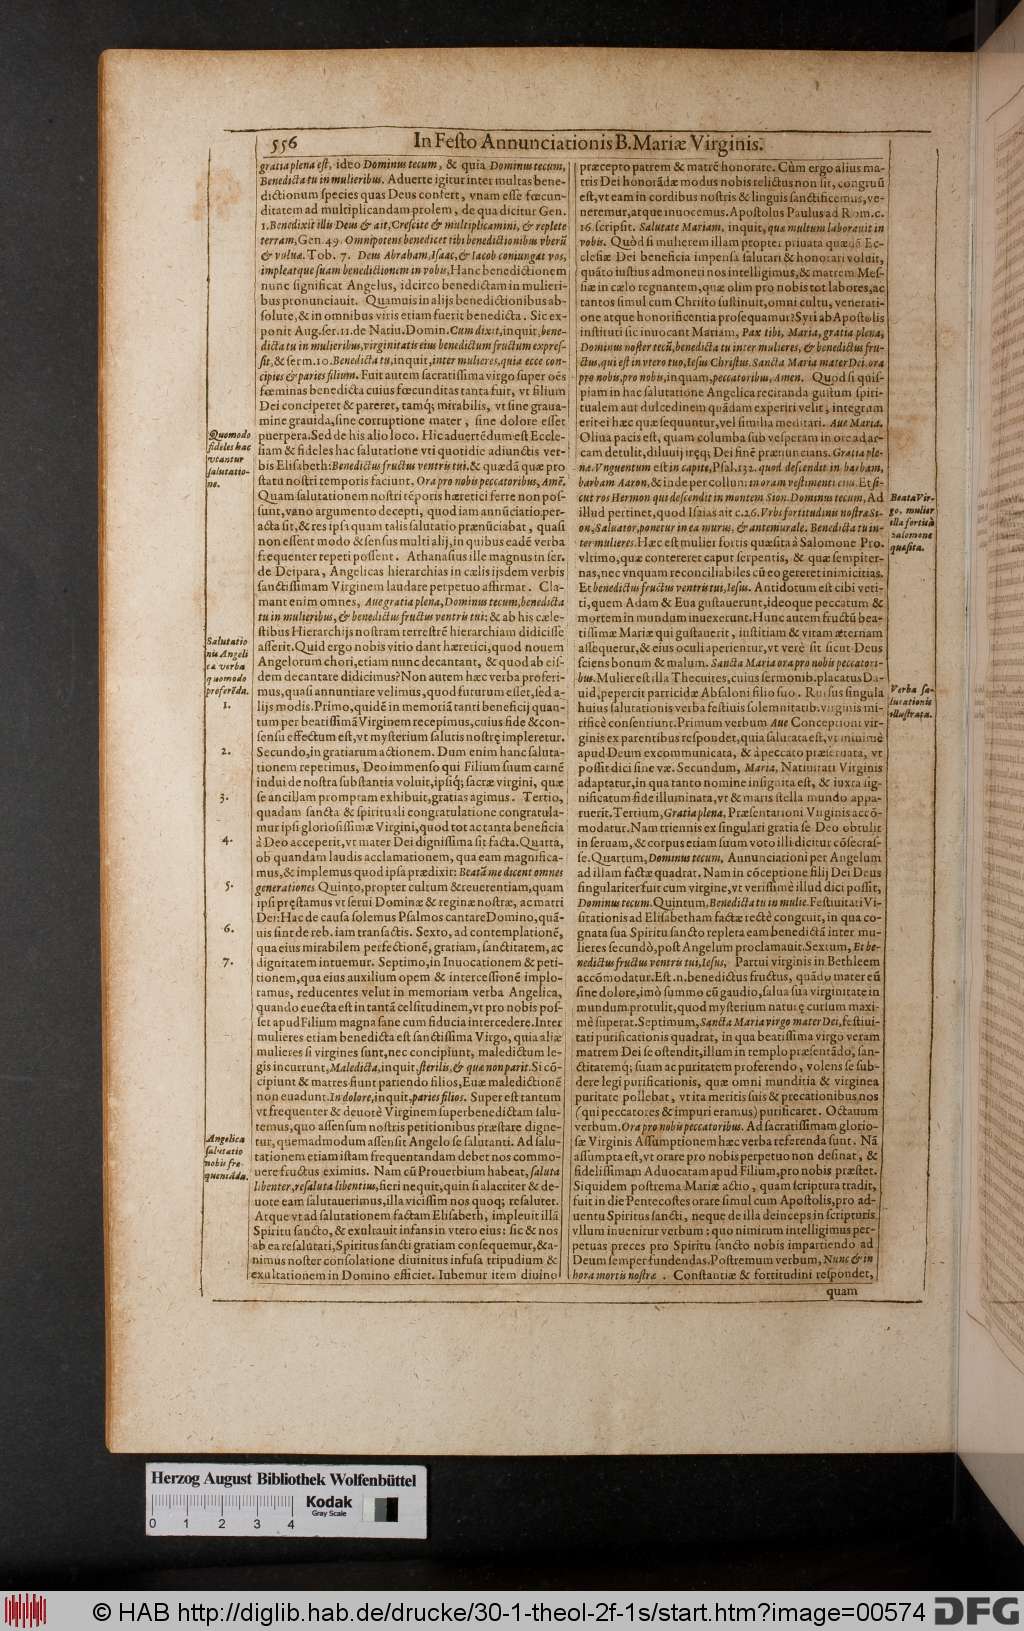 556
In Festo Annunciationis B. Mariæ Virginis.
gratia plena est, ideo Dominus tecum, & quia Dominus tecum,
Benedicta tu in mulieribus. Aduerte igitur inter multas bene-
dictionum species quas Deus confert, vnam esse fœcun-
ditatem ad multiplicandam prolem, de qua dicitur Gen.
1. Benedixit illis Deus & ait, Crescite & multiplicamini, & replete
terram, Gen. 49. Omnipotens benedicet tibi benedictionibus vberũ
& vuluæ. Tob. 7. Deus Abraham, Isaac, & Iacob coniungat vos,
impleatque suam benedictionem in vobis, Hanc benedictionem
nunc significat Angelus, idcirco benedictam in mulieri-
bus pronunciauit. Quamuis in alijs benedictionibus ab-
solute, & in omnibus viris etiam fuerit benedicta. Sic ex-
ponit Aug. ser. 11. de Natiu. Domin. Cum dixit, inquit, bene-
dicta tu in mulieribus, virginitatis eius benedictum fructum expres-
sit, & serm. 10. Benedicta tu, inquit, inter mulieres, quia ecce con-
cipies & paries filium. Fuit autem sacratissima virgo super oẽs
fœminas benedicta cuius fœcunditas tanta fuit, vt filium
Dei conciperet & pareret, tamq́; mirabilis, vt sine graua-
mine grauida, sine corruptione mater, sine dolore esset
puerpera. Sed de his alio loco. Hic aduertẽdum est Eccle-
siam & fideles hac salutatione vti quotidie adiunctis ver-
bis Elisabeth: Benedictus fructus ventris tui. & quædã quæ pro
statu nostri temporis faciunt. Ora pro nobis peccatoribus, Amẽ.
Quam salutationem nostri tẽporis hæretici ferre non pos-
sunt, vano argumento decepti, quod iam annũciatio per-
acta sit, & res ipsa quam talis salutatio prænũciabat, quasi
non essent modo & sensus multi alij, in quibus eadẽ verba
frequenter repeti possent. Athanasius ille magnus in ser.
de Deipara, Angelicas hierarchias in cælis ijsdem verbis
sanctissimam Virginem laudare perpetuo affirmat. Cla-
mant enim omnes, Aue gratia plena, Dominus tecum, benedicta
tu in mulieribus, & benedictus fructus ventris tui: & ab his cæle-
stibus Hierarchijs nostram terrestrẽ hierarchiam didicisse
asserit. Quid ergo nobis vitio dant hæretici, quod nouem
Angelorum chori, etiam nunc decantant, & quod ab eis-
dem decantare didicimus? Non autem hæc verba proferi-
mus, quasi annuntiare velimus, quod futurum esset, sed a-
lijs modis. Primo, quidẽ in memoriã tanti beneficij quan-
tum per beatissimã Virginem recepimus, cuius fide & con-
sensu effectum est, vt mysterium salutis nostrę impleretur.
Secundo, in gratiarum actionem. Dum enim hanc saluta-
tionem repetimus, Deo immenso qui Filium suum carnẽ
indui de nostra substantia voluit, ipsiq́; sacræ virgini, quæ
se ancillam promptam exhibuit, gratias agimus. Tertio,
quadam sancta & spirituali congratulatione congratula-
mur ipsi gloriosissimæ Virgini, quod tot ac tanta beneficia
à Deo acceperit, vt mater Dei dignissima sit facta. Quarta,
ob quandam laudis acclamationem, qua eam magnifica-
mus, & implemus quod ipsa prædixit: Beatã me dicent omnes
generationes Quinto, propter cultum & reuerentiam, quam
ipsi pręstamus vt serui Dominæ & reginæ nostræ, ac matri
Dei: Hac de causa solemus Psalmos cantare Domino, quã-
uis sint de reb. iam transactis. Sexto, ad contemplationẽ,
qua eius mirabilem perfectionẽ, gratiam, sanctitatem, ac
dignitatem intuemur. Septimo, in Inuocationem & peti-
tionem, qua eius auxilium opem & intercessionẽ implo-
ramus, reducentes velut in memoriam verba Angelica,
quando euecta est in tantã celsitudinem, vt pro nobis pos-
set apud Filium magna sane cum fiducia intercedere. Inter
mulieres etiam benedicta est sanctissima Virgo, quia aliæ
mulieres si virgines sunt, nec concipiunt, maledictum le-
gis incurrunt, Maledicta, inquit, sterilis, & quæ non parit. Si cõ-
cipiunt & matres fiunt pariendo filios, Euæ maledictionẽ
non euadunt. In dolore, inquit, paries filios. Super est tantum
vt frequenter & deuotè Virginem superbenedictam salu-
temus, quo assensum nostris petitionibus præstare digne-
tur, quemadmodum assensit Angelo se salutanti. Ad salu-
tationem etiam istam frequentandam debet nos commo-
uere fructus eximius. Nam cũ Prouerbium habeat, saluta
libenter, resaluta libentius, fieri nequit, quin si alacriter & de-
uote eam salutauerimus, illa vicissim nos quoq; resalutet.
Atque vt ad salutationem factam Elisabeth, impleuit illã
Spiritu sancto, & exultauit infans in vtero eius: sic & nos
ab ea resalutati, Spiritus sancti gratiam consequemur, & a-
nimus noster consolatione diuinitus infusa tripudium &
exultationem in Domino efficiet. Iubemur item diuino
Quomodo
fideles hac
vtantur
salutatio-
ne.
Salutatio
nis Angeli
ca verba
quomodo
proferẽda.
1.
2.
3.
4.
5.
6.
7.
Angelica
salutatio
nobis fre-
quentãda.
præcepto patrem & matrẽ honorare. Cùm ergo alius ma-
tris Dei honorãdæ modus nobis relictus non sit, congruũ
est, vt eam in cordibus nostris & linguis sanctificemus, ve-
neremur, atque inuocemus. Apostolus Paulus ad Rom. c.
16. scripsit. Salutate Mariam, inquit, quæ multum laborauit in
vobis. Quòd si mulierem illam propter priuata quædã Ec-
clesiæ Dei beneficia impensa salutari & honorari voluit,
quãto iustius admoneri nos intelligimus, & matrem Mes-
siæ in cælo regnantem, quæ olim pro nobis tot labores, ac
tantos simul cum Christo sustinuit, omni cultu, venerati-
one atque honorificentia prosequamur? Syri ab Apostolis
instituti sic inuocant Mariam, Pax tibi, Maria, gratia plena,
Dominus noster tecũ, benedicta tu inter mulieres, & benedictus fru-
ctus, qui est in vtero tuo, Iesus Christus. Sancta Maria mater Dei, ora
pro nobis, pro nobis, inquam, peccatoribus, Amen. Quod si quis-
piam in hac salutatione Angelica recitanda gustum spiri-
tualem aut dulcedinem quãdam experiri velit, integrum
erit ei hæc quæ sequuntur, vel similia meditari. Aue Maria.
Oliua pacis est, quam columba sub vesperam in ore ad ar-
cam detulit, diluuij iręq; Dei finẽ prænuncians. Gratia ple-
na. Vnguentum est in capite, Psal. 132. quod descendit in barbam,
barbam Aaron, & inde per collum in oram vestimenti eius. Et si-
cut ros Hermon qui descendit in montem Sion. Dominus tecum, Ad
illud pertinet, quod Isaias ait c. 26. Vrbs fortitudinis nostræ Si-
on, Saluator, ponetur in ea murus, & antemurale. Benedicta tu in-
ter mulieres. Hæc est mulier fortis quæsita à Salomone Pro.
vltimo, quæ contereret caput serpentis, & quæ sempiter-
nas, nec vnquam reconciliabiles cũ eo gereret inimicitias.
Et benedictus fructus ventris tui, Iesus. Antidotum est cibi veti-
ti, quem Adam & Eua gustauerunt, ideoque peccatum &
mortem in mundum inuexerunt. Hunc autem fructũ bea-
tissimæ Mariæ qui gustauerit, iustitiam & vitam æternam
assequetur, & eius oculi aperientur, vt verè sit sicut Deus
sciens bonum & malum. Sancta Maria ora pro nobis peccatori-
bus. Mulier est illa Thecuites, cuius sermonib. placatus Da-
uid, pepercit parricidæ Absaloni filio suo. Rursus singula
huius salutationis verba festiuis solemnitatib. virginis mi-
rificè consentiunt. Primum verbum Aue Conceptioni vir-
ginis ex parentibus respondet, quia salutata est, vt minimè
apud Deum excommunicata, & à peccato præseruata, vt
possit dici sine væ. Secundum, Maria, Natiuitati Virginis
adaptatur, in qua tanto nomine insignita est, & iuxta sig-
nificatum fide illuminata, vt & maris stella mundo appa-
ruerit. Tertium, Gratia plena, Præsentationi Virginis accõ-
modatur. Nam triennis ex singulari gratia se Deo obtulit
in seruam, & corpus etiam suum voto illi dicitur cõsecras-
se. Quartum, Dominus tecum, Annunciationi per Angelum
ad illam factæ quadrat. Nam in cõceptione filij Dei Deus
singulariter fuit cum virgine, vt verissimè illud dici possit,
Dominus tecum. Quintum, Benedicta tu in mulie. Festiuitati Vi-
sitationis ad Elisabetham factæ rectè congruit, in qua co-
gnata sua Spiritu sancto repleta eam benedictã inter mu-
lieres secundò, post Angelum proclamauit. Sextum, Et be-
nedictus fructus ventris tui, Iesus, Partui virginis in Bethleem
accõmodatur. Est. n. benedictus fructus, quãdo mater eũ
sine dolore, imò summo cũ gaudio, salua sua virginitate in
mundum protulit, quod mysterium naturę cursum maxi-
mè superat. Septimum, Sancta Maria virgo mater Dei, festiui-
tati purificationis quadrat, in qua beatissima virgo veram
matrem Dei se ostendit, illum in templo præsentãdo, san-
ctitatemq́; suam ac puritatem proferendo, volens se sub-
dere legi purificationis, quæ omni munditia & virginea
puritate pollebat, vt ita meritis suis & precationibus nos
(qui peccatores & impuri eramus) purificaret. Octauum
verbum. Ora pro nobis peccatoribus. Ad sacratissimam glorio-
sæ Virginis Assumptionem hæc verba referenda sunt. Nã
assumpta est, vt orare pro nobis perpetuo non desinat, &
fidelissimam Aduocatam apud Filium, pro nobis præstet.
Siquidem postrema Mariæ actio, quam scriptura tradit,
fuit in die Pentecostes orare simul cum Apostolis, pro ad-
uentu Spiritus sancti, neque de illa deinceps in scripturis
vllum inuenitur verbum: quo nimirum intelligimus per-
petuas preces pro Spiritu sancto nobis impartiendo ad
Deum semper fundendas. Postremum verbum, Nunc & in
hora mortis nostræ. Constantiæ & fortitudini respondet,
quam
Beata Vir-
go, mulier
illa fortis à
Salomone
quæsita.
Verba sa-
lutationis
illustrata.
Herzog August Bibliothek Wolfenbüttel
Kodak
Gray Scale
0 1 2 3 4
© HAB http://diglib.hab.de/drucke/30-1-theol-2f-1s/start.htm?image=00574
DFG